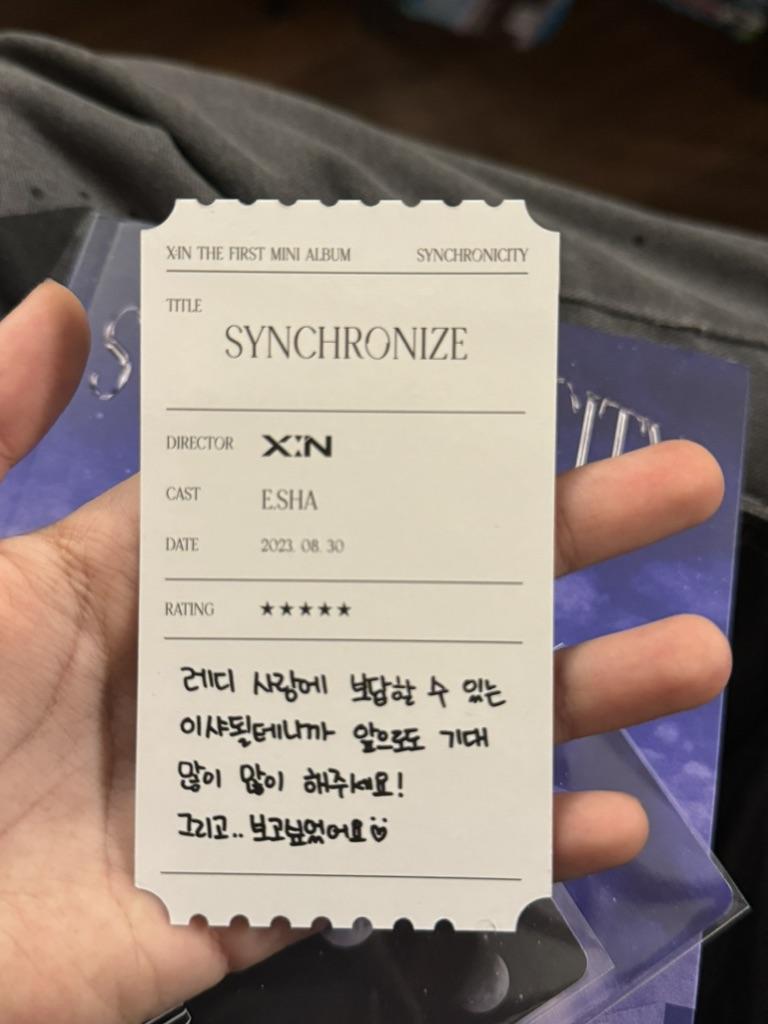 X:IN THE FIRST MINI ALBUM SYNCHRONICITY
TITLE
SYNCHRONIZE
DIRECTOR X:IN
CAST E.SHA
DATE 2023. 08. 30
RATING ★★★★★
레디 사랑에 보답할 수 있는
이샤될테니까 앞으로도 기대
많이 많이 해주세요!
그리고.. 보고싶었어요